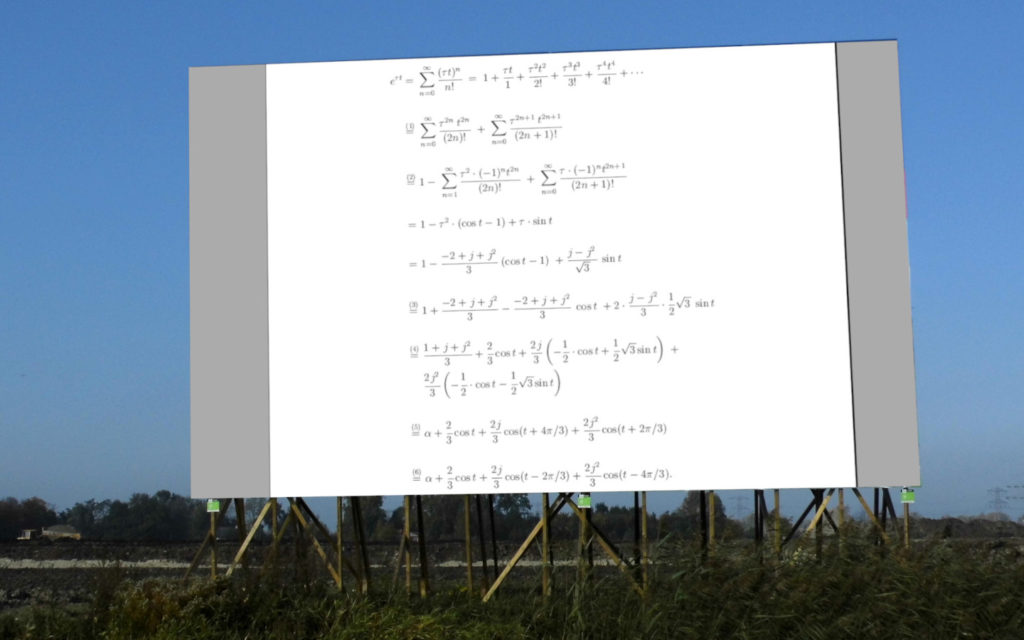 e^{τt} = \sum_{n=0}^{∞} \frac{(τt)^n}{n!} = 1 + \frac{τt}{1} + \frac{τ^2t^2}{2!} + \frac{τ^3t^3}{3!} + \frac{τ^4t^4}{4!} + ···
\stackrel{(1)}{=} \sum_{n=0}^{∞} \frac{τ^{2n} t^{2n}}{(2n)!} + \sum_{n=0}^{∞} \frac{τ^{2n+1} t^{2n+1}}{(2n+1)!}
\stackrel{(2)}{=} 1 − \sum_{n=1}^{∞} \frac{τ^2 · (−1)^n t^{2n}}{(2n)!} + \sum_{n=0}^{∞} \frac{τ · (−1)^n t^{2n+1}}{(2n+1)!}
= 1 − τ^2 · (cos t − 1) + τ · sin t
= 1 − \frac{−2 + j + j^2}{3} (cos t − 1) + \frac{j − j^2}{\sqrt{3}} sin t
\stackrel{(3)}{=} 1 + \frac{−2 + j + j^2}{3} − \frac{−2 + j + j^2}{3} cos t + 2 · \frac{j − j^2}{3} · \frac{1}{2}\sqrt{3} sin t
\stackrel{(4)}{=} \frac{1 + j + j^2}{3} + \frac{2}{3} cos t + \frac{2j}{3} (−\frac{1}{2} · cos t + \frac{1}{2}\sqrt{3} sin t) +
\frac{2j^2}{3} (−\frac{1}{2} · cos t − \frac{1}{2}\sqrt{3} sin t)
\stackrel{(5)}{=} α + \frac{2}{3} cos t + \frac{2j}{3} cos(t + 4π/3) + \frac{2j^2}{3} cos(t + 2π/3)
\stackrel{(6)}{=} α + \frac{2}{3} cos t + \frac{2j}{3} cos(t − 2π/3) + \frac{2j^2}{3} cos(t − 4π/3).